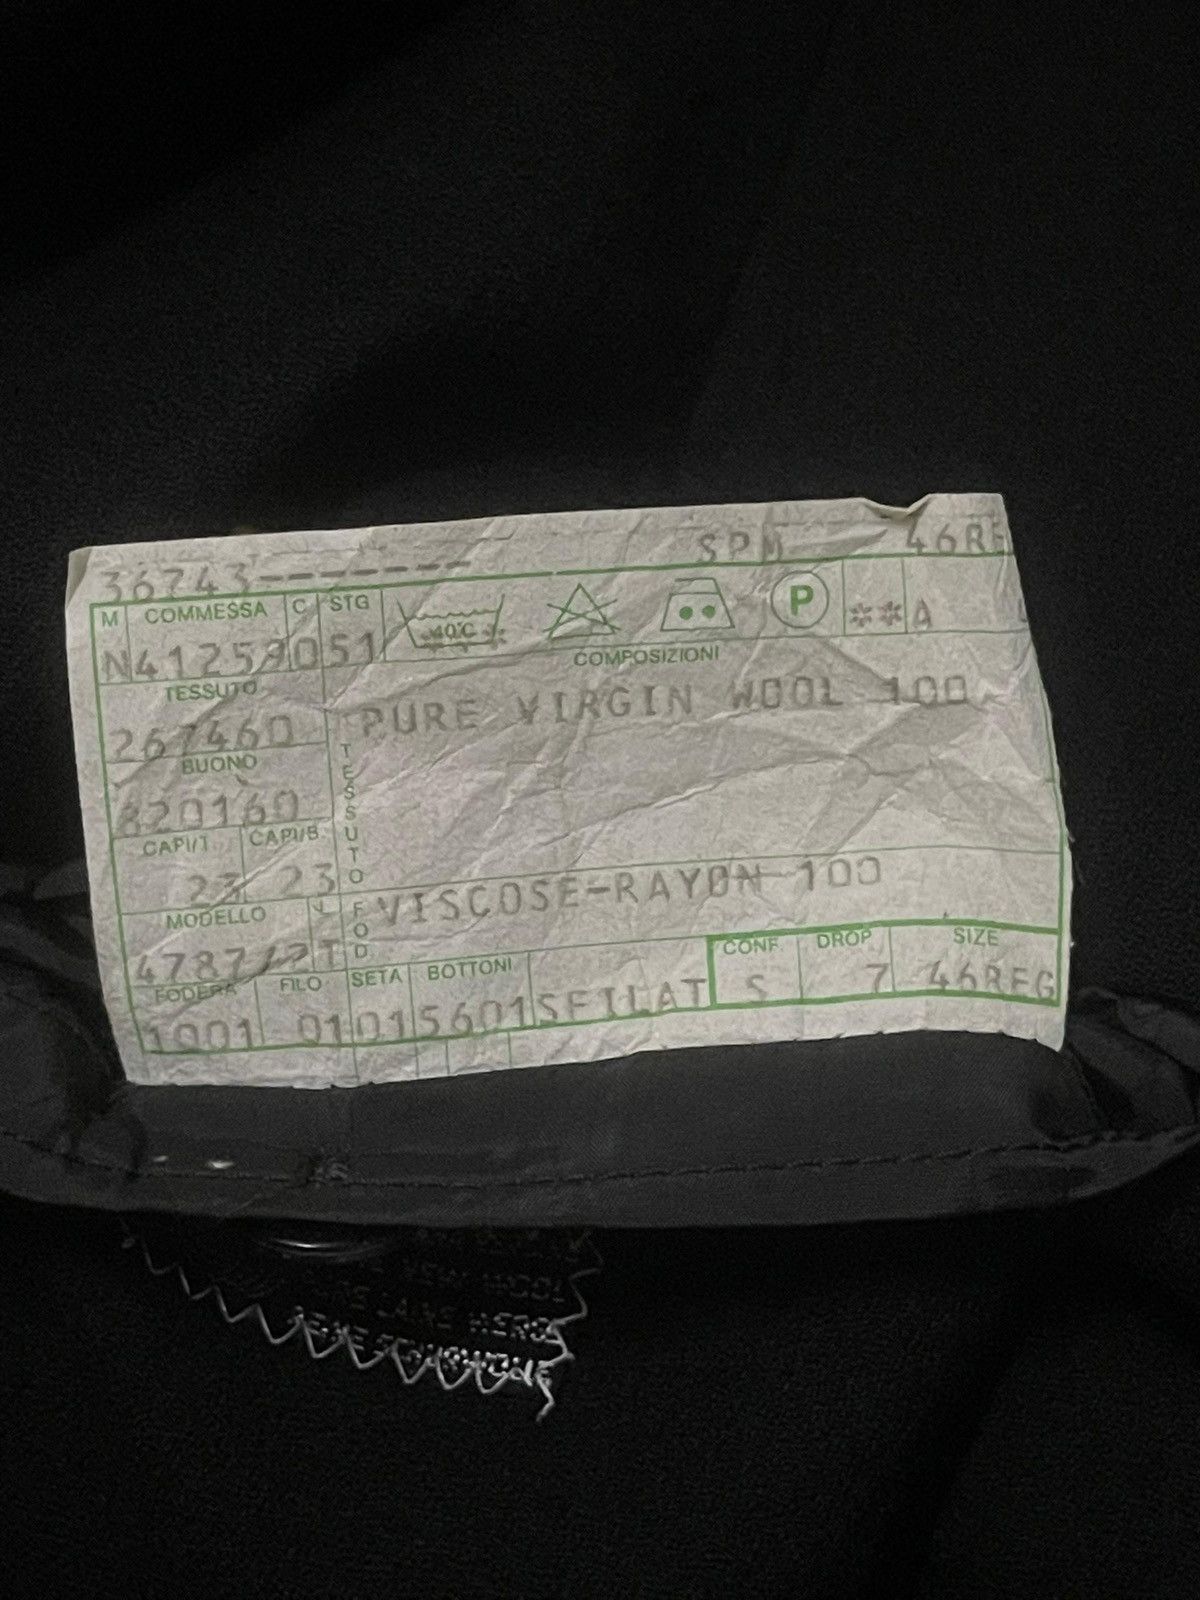 36743-------- SPM 46RE
M COMMESSA C STG
N 41259 0 51 40°C P **A
TESSUTO COMPOSIZIONI
267460 PURE VIRGIN WOOL 100
BUONO TESSUTO
820160
CAPI/T. CAPI/B.
23 23
VISCOSE-RAYON 100
MODELLO V FOD
4787 2T
FODERA FILO SETA BOTTONI CONF. DROP SIZE
1001 01 01 5601 SFILAT S 7 46REG